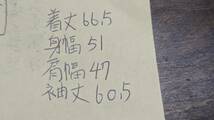 着丈66.5
身幅51
肩幅47
袖丈60.5